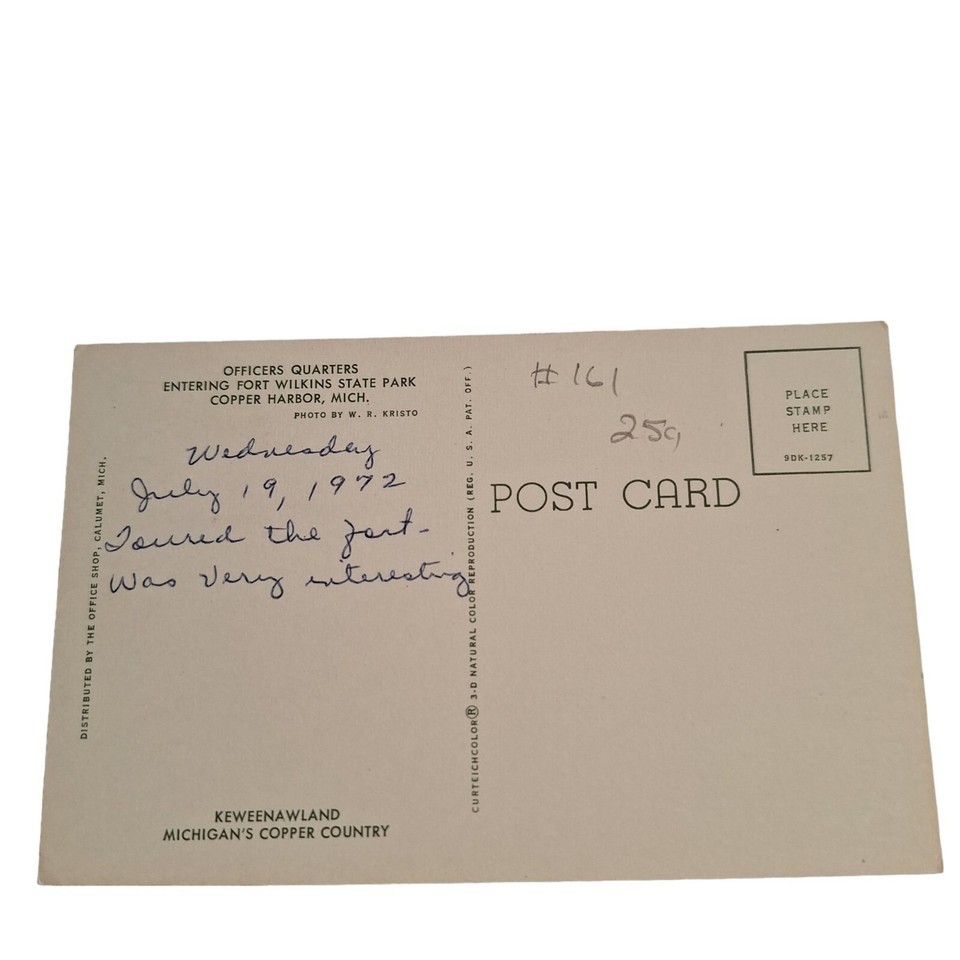 OFFICERS QUARTERS
ENTERING FORT WILKINS STATE PARK
COPPER HARBOR, MICH.
PHOTO BY W. R. KRISTO
Wednesday
July 19, 1972
Toured the fort-
Was very interesting
DISTRIBUTED BY THE OFFICE SHOP, CALUMET, MICH.
KEWEENAWLAND
MICHIGAN'S COPPER COUNTRY
CURTEICHCOLOR® 3-D NATURAL COLOR REPRODUCTION (REG. U. S. A. PAT. OFF.)
# 161
25¢
POST CARD
PLACE
STAMP
HERE
9DK-1257